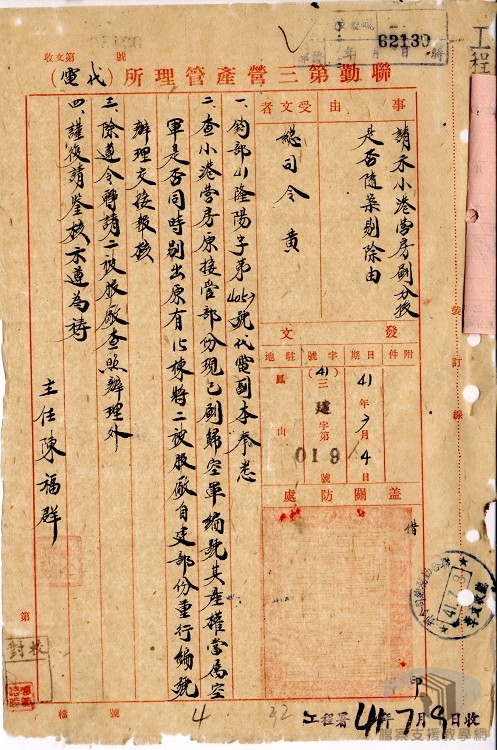 62139
工程
收文第 號
聯勤第三營產管理所（代電）
事由
受文者
請示小港營房劃分後
是否隨案剔除由
總司令黃
發文
附件
日期
字號
駐地
41年7月4日
(41)三建字第019號
鳳山
蓋關防處
借印
裝訂線
一、鈞部41隆陽字第4053號代電副本奉悉
二、查小港營房原接管部份現已劃歸空軍編號其產權當屬空
軍是否同時剔出原有15棟將二被服廠自建部份重行編號
辦理交接報核
三、除遵令轉請二被服廠查照辦理外
四、謹復請鑒核示遵為禱
主任陳福群
校對
第 號 檔
4
32
工程署 41年7月9日收
檔案支援教學網